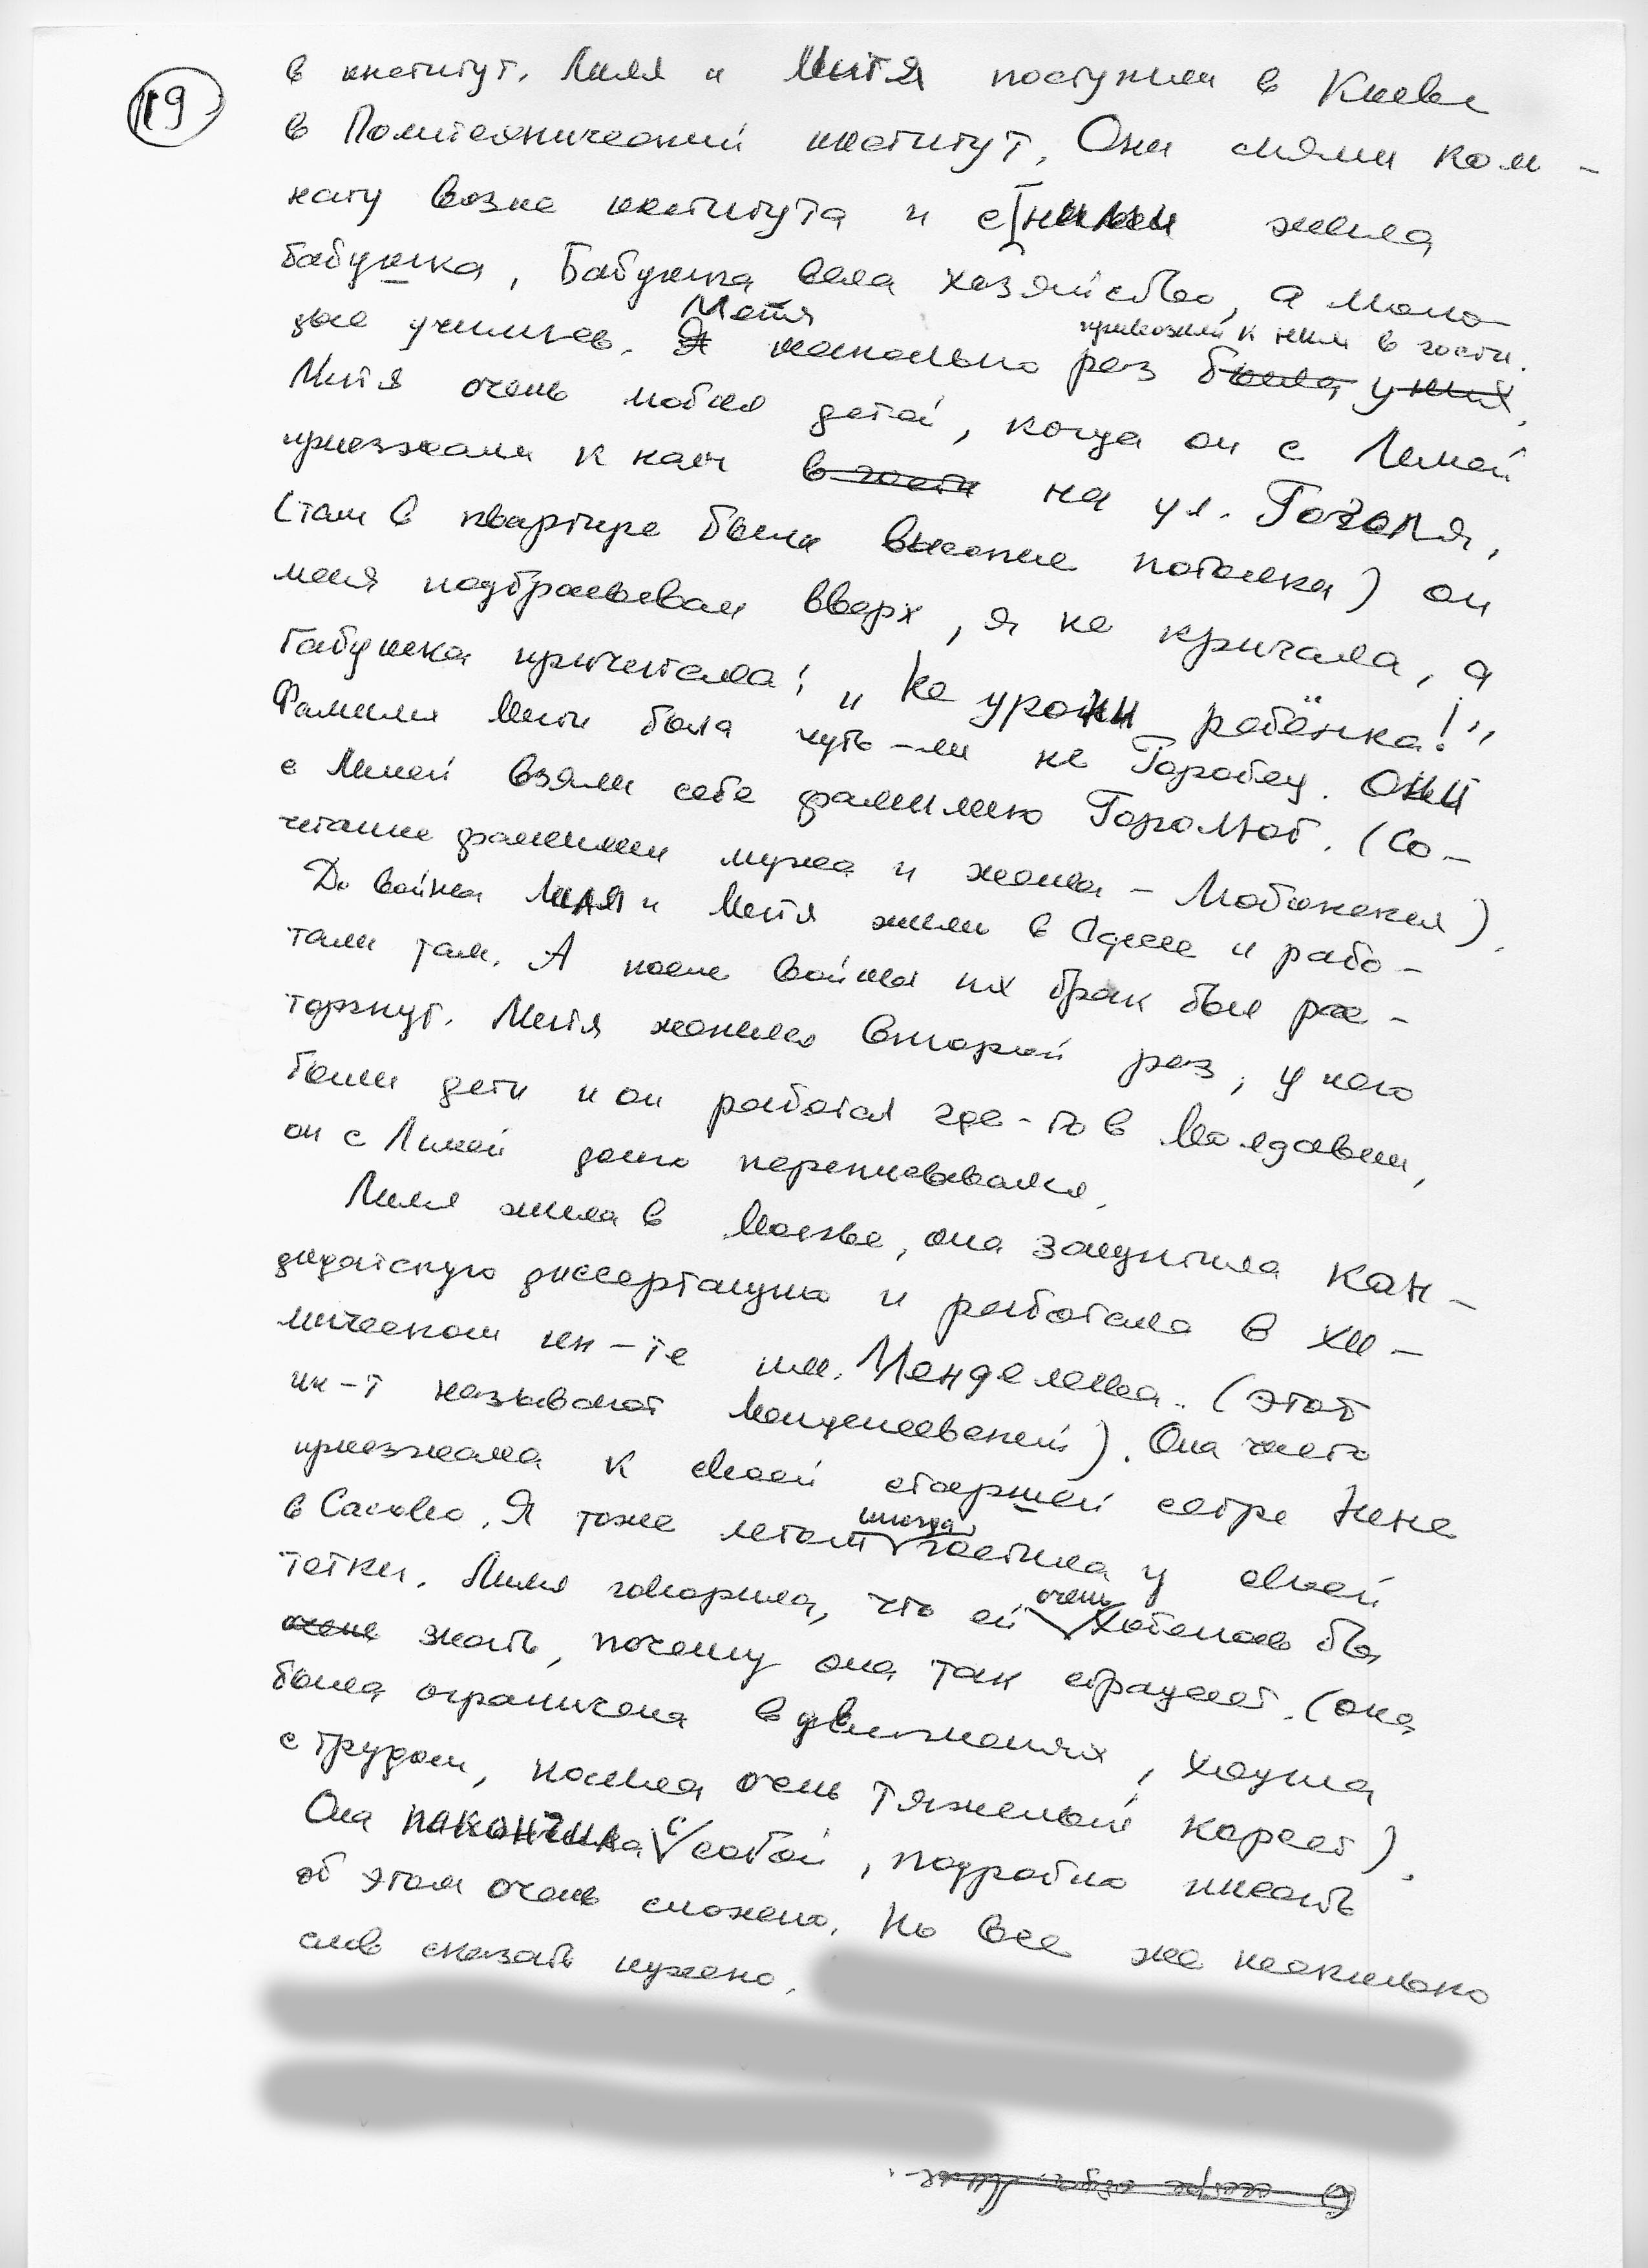 19
в институт. Лиля и Митя поступили в Киеве
в Политехнический институт. Они сняли ком-
нату возле института и с ними жила
бабушка. Бабушка вела хозяйство, а моло-
дые учились. Я Мотя несколько раз была у них. приезжали к ним в гости.
Митя очень любил детей, когда он с Лилей
приезжали к нам в гости на ул. Гоголя,
(там в квартире были высокие потолки) он
меня подбрасывал вверх, я не кричала, а
бабушка причитала: „Не урони ребёнка!"
Фамилия Мити была чуть-ли не Горобец. Они
с Лилей взяли себе фамилию Горолюб. (Со-
четание фамилии мужа и жены - Любинская).
До войны Лиля и Митя жили в Одессе и рабо-
тали там. А после войны их брак был рас-
торгнут. Митя женился второй раз, у него
были дети и он работал где-то в Молдавии,
он с Лилей долго переписывался.
Лиля жила в Москве, она защитила кан-
дидатскую диссертацию и работала в хи-
мическом ин-те им. Менделеева. (этот
ин-т называют Менделеевский). Она часто
приезжала к своей старшей сестре Нине
в Сасово. Я тоже летом иногда гостила у своей
тётки. Лиля говорила, что ей очень хотелось бы
очень знать, почему она так страдает. (она
была ограничена в движениях, ходила
с трудом, носила очень тяжелый корсет).
Она покончила с собой, подробно писать
об этом очень сложно. Но все же несколько
слов сказать нужно.